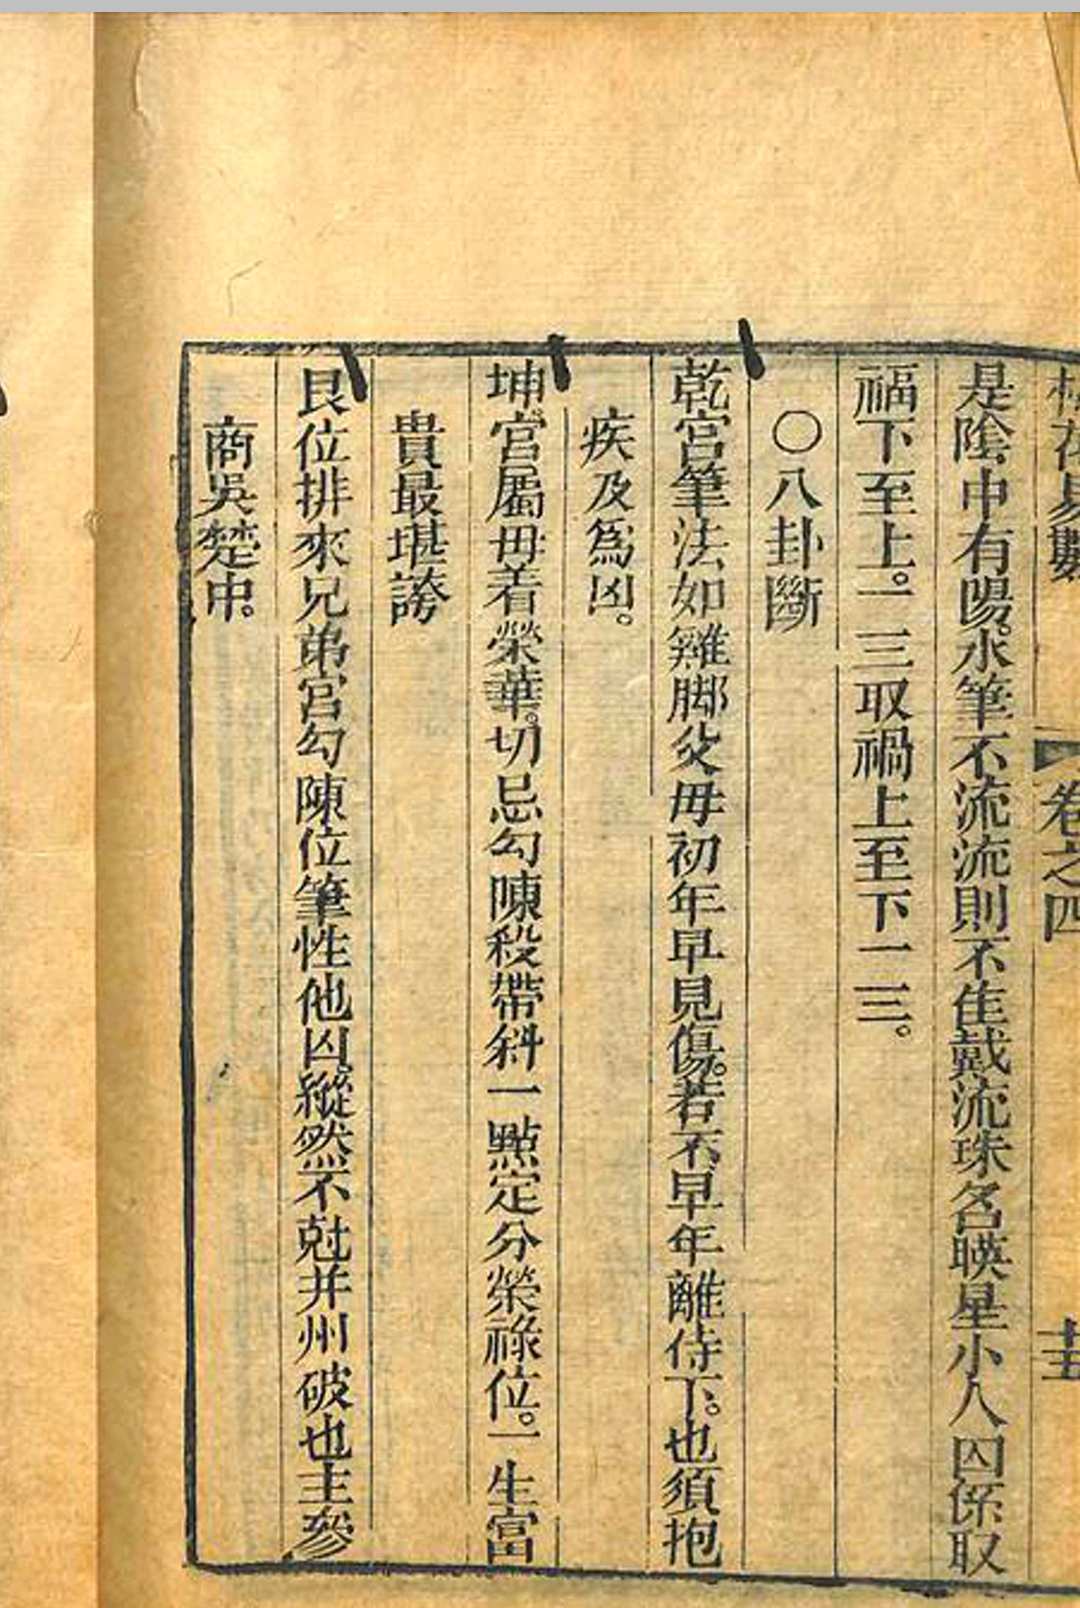 梅花易數 卷之四 十五
是陰中有陽。水筆不流流則不佳戴流珠名暎星小人囚係取
福下至上。一二三取禍上至下一二三。
〇八卦斷
乾宮筆法如雞脚父母初年早見傷。若不早年離侍下。也須抱
疾及爲凶。
坤。宮屬母着榮華。切忌勾陳殺帶斜一㸃定分榮祿位。一生富
貴最堪誇
艮位排來兄弟宮勾陳位筆性他凶。縱然不尅并州破也主參
商吳楚中。